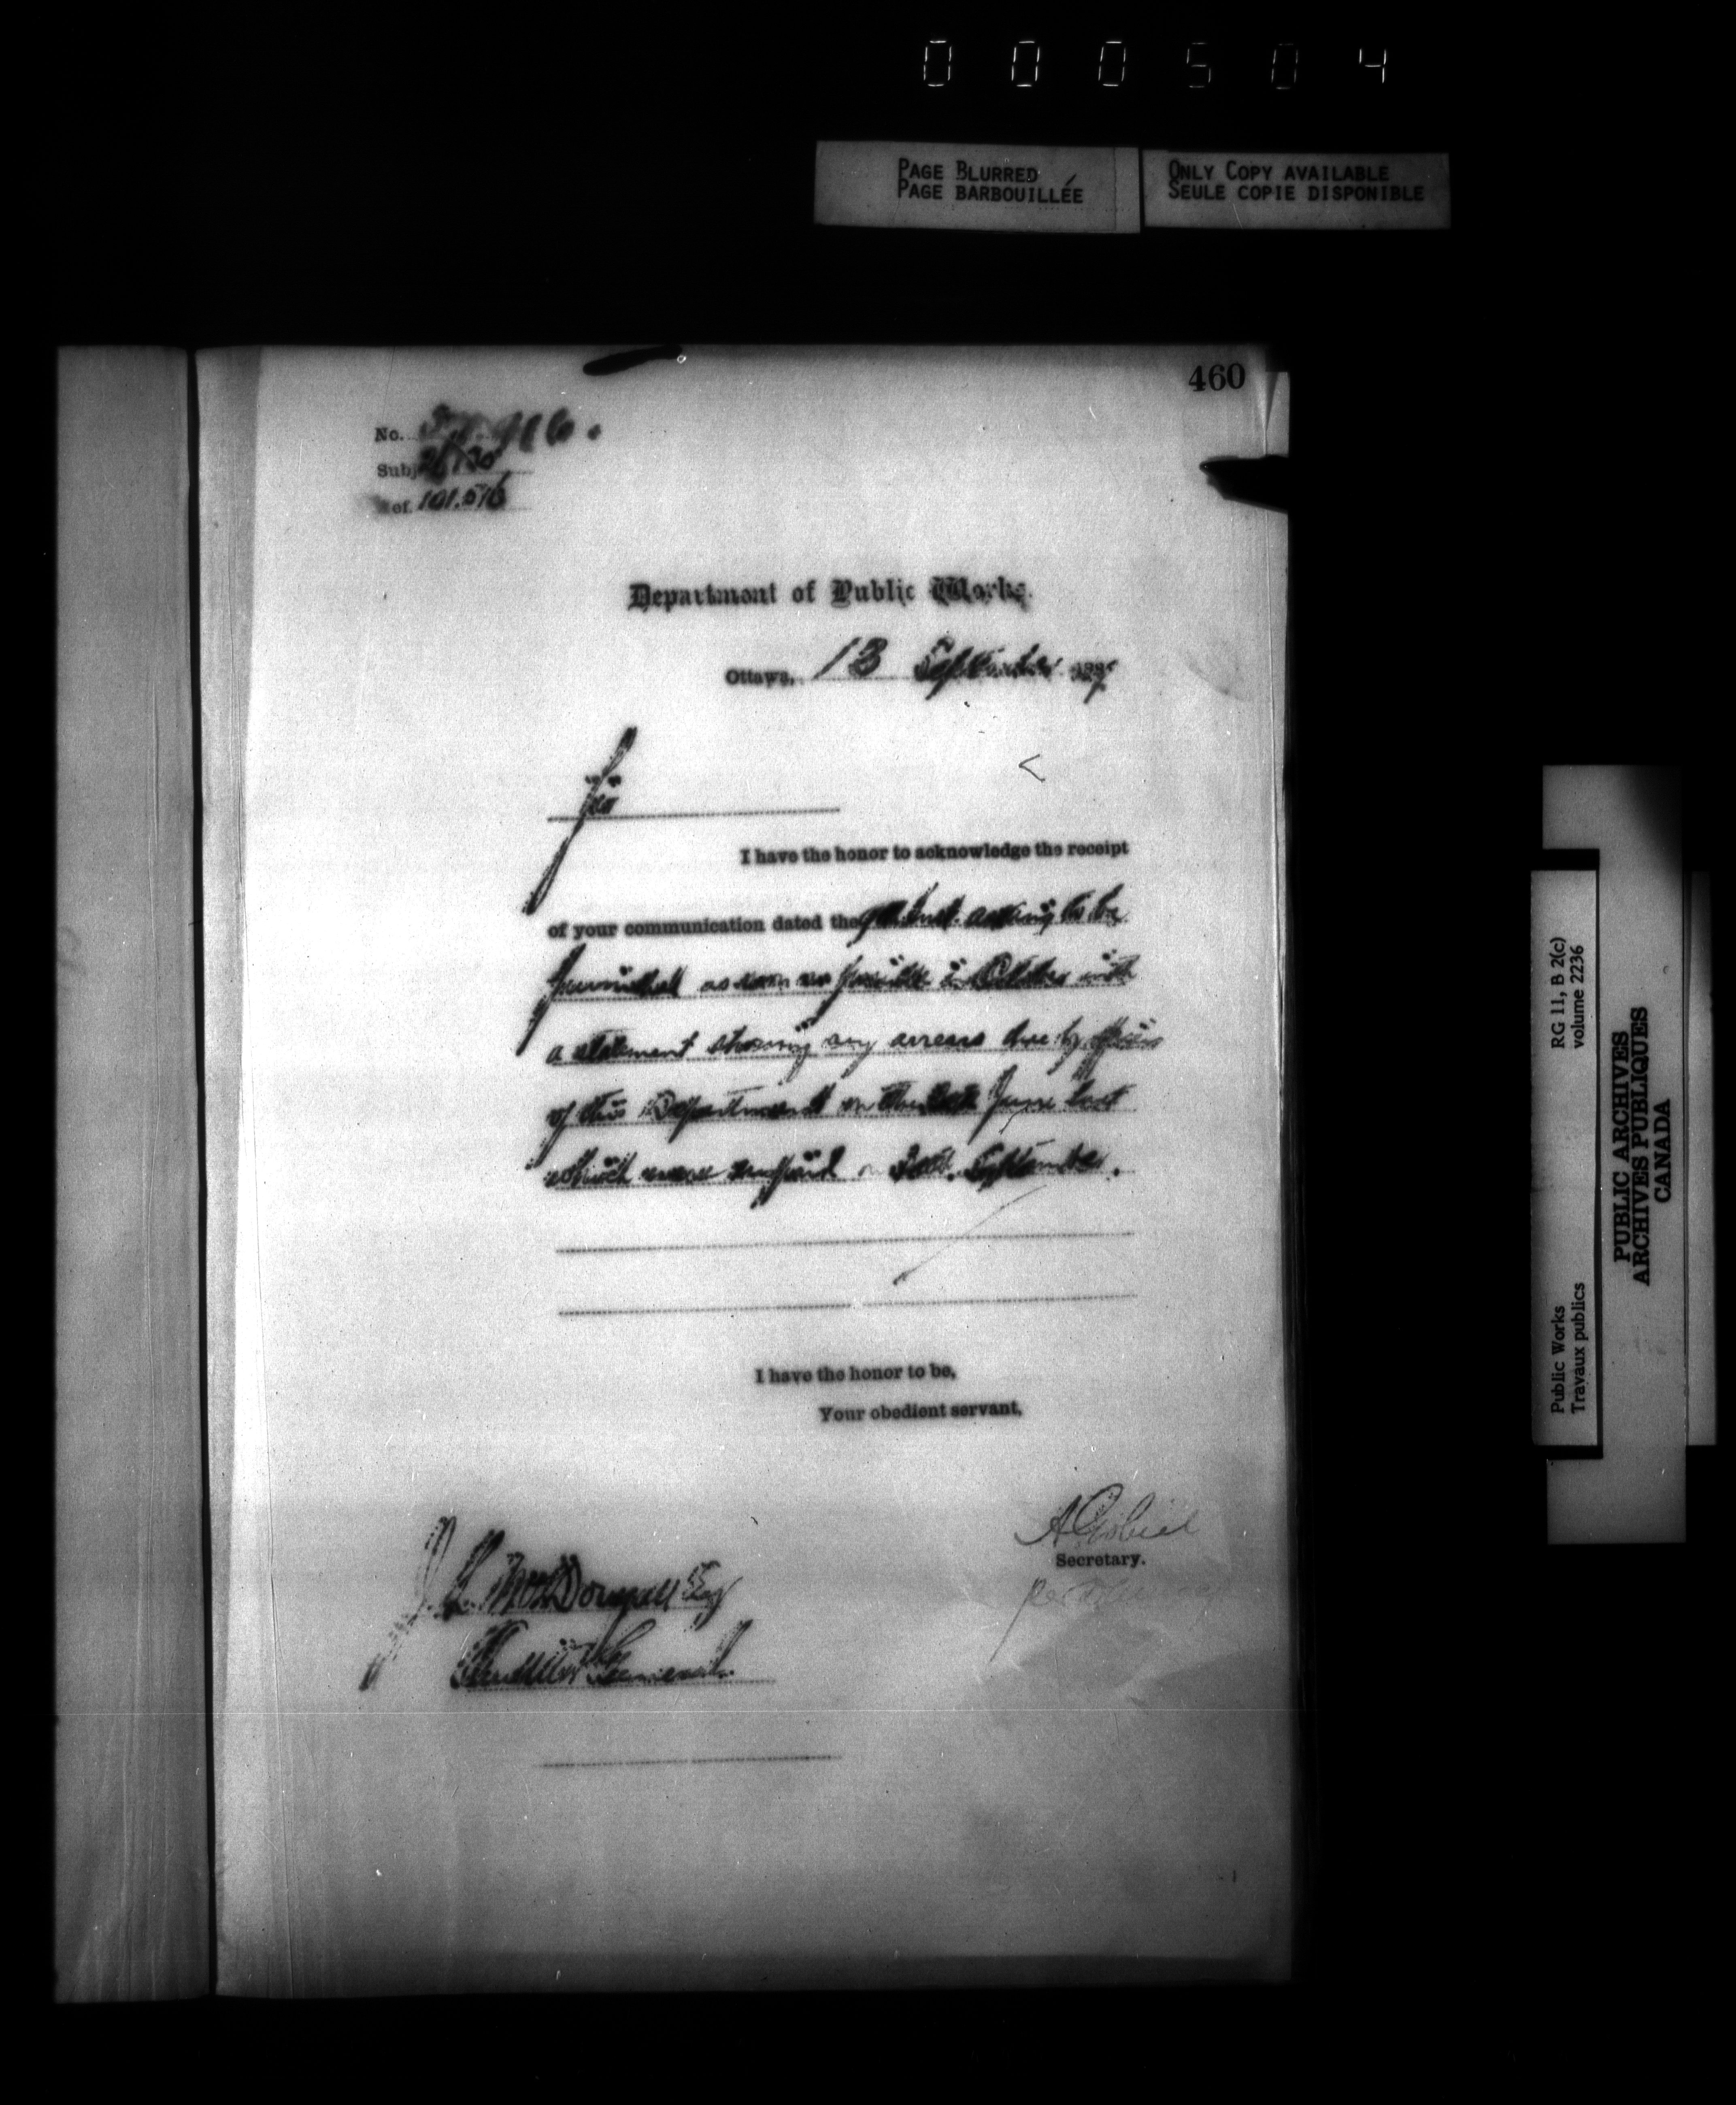 000504
PAGE BLURRED
PAGE BARBOUILLÉE
ONLY COPY AVAILABLE
SEULE COPIE DISPONIBLE
460
No. 916.
Subj
Ref. 101.516
Department of Public Works.
Ottawa, 13 September 1887
Sir
I have the honor to acknowledge the receipt
of your communication dated the 9th Inst. asking to be
furnished as soon as possible in October with
a statement showing any arrears due by
of this Department on the June last
which were unpaid on 30th September.
I have the honor to be,
Your obedient servant,
A Gobeil
Secretary.
per
J. L. McDougall Esq
Auditor General.
RG 11, B 2(c)
volume 2236
Public Works
Travaux publics
PUBLIC ARCHIVES
ARCHIVES PUBLIQUES
CANADA